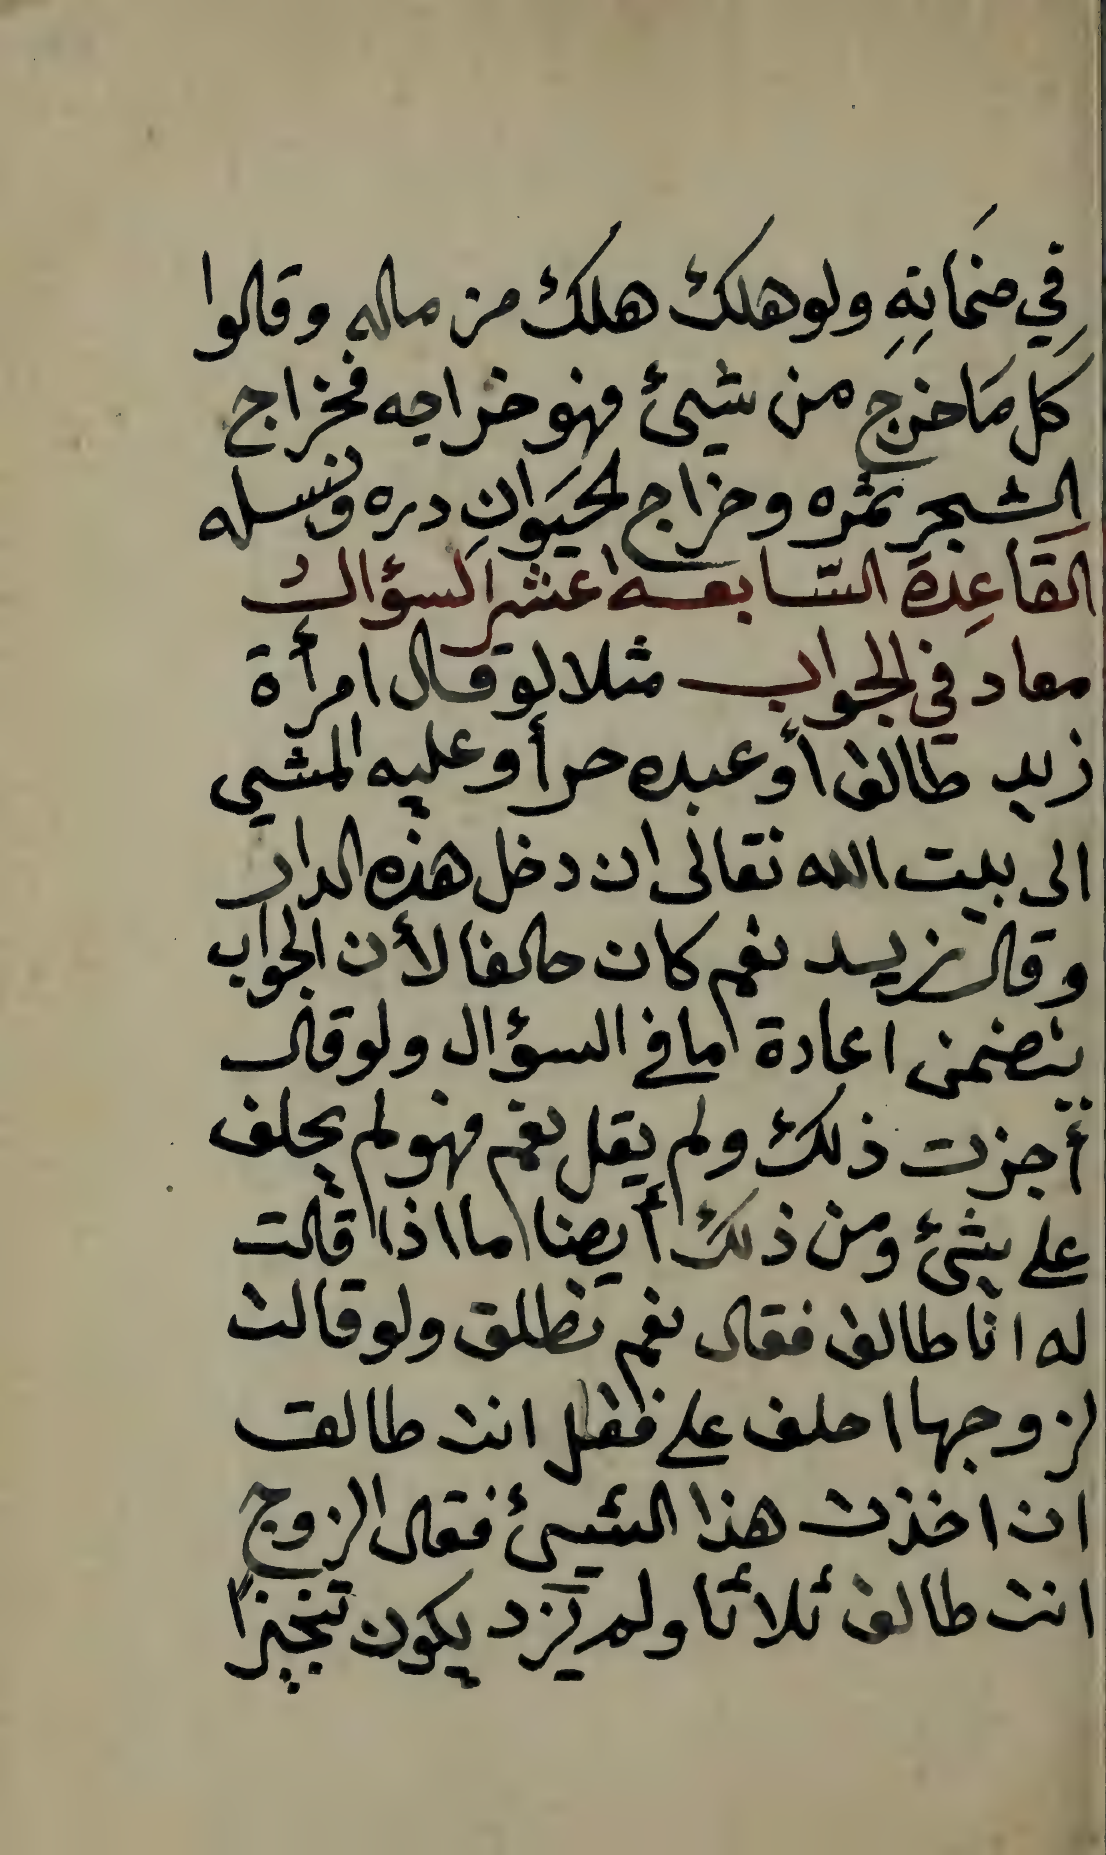 فِي ضمَانِهِ ولو هلك هلك من ماله وقالوا
كل مَا خرَج من شيئ فهو خراجه فخراج
الشجر ثمره وخراج الحيَوانِ دره ونسله
القَاعِدَة السَّابعه عشر السؤال
معاد في الجواب مثلا لو قال امرأة
زيد طالق أو عبده حر أو عليه المشي
الى بيت الله تعالى ان دخل هذه الدار
وقال زيد نعم كان حالفا لأن الجواب
يتضمن اعادة ما في السؤال ولو قال
أجزت ذلك ولم يقل نعم فهو لم يحلف
على شئ ومن ذلك أيضا ما اذا قالت
له انا طالق فقال نعم تطلق ولو قالت
لزوجها احلف على فقل انت طالق
ان اخذت هذا الشيئ فقال الزوج
انت طالق ثلاثا ولم يزد يكون تنجيزا